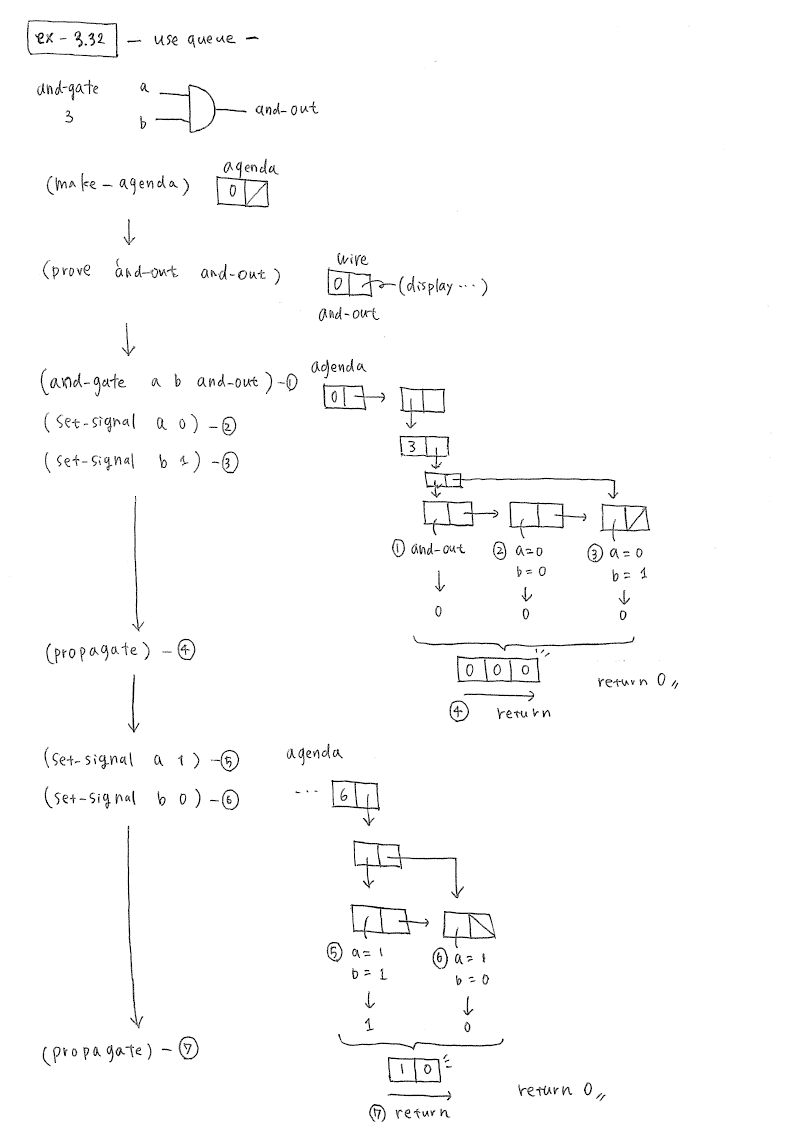 ex - 3.32 — use queue —
and-gate
3
a
b
and-out
(make-agenda)
agenda
0
(prove 'and-out and-out)
wire
0
(display ...)
and-out
(and-gate a b and-out) - ①
(set-signal a 0) - ②
(set-signal b 1) - ③
agenda
0
3
① and-out
② a=0
b=0
③ a=0
b=1
0
0
0
(propagate) - ④
0 0 0
④ return
return 0〃
(set-signal a 1) - ⑤
(set-signal b 0) - ⑥
agenda
... 6
⑤ a=1
b=1
⑥ a=1
b=0
1
0
(propagate) - ⑦
1 0
⑦ return
return 0〃